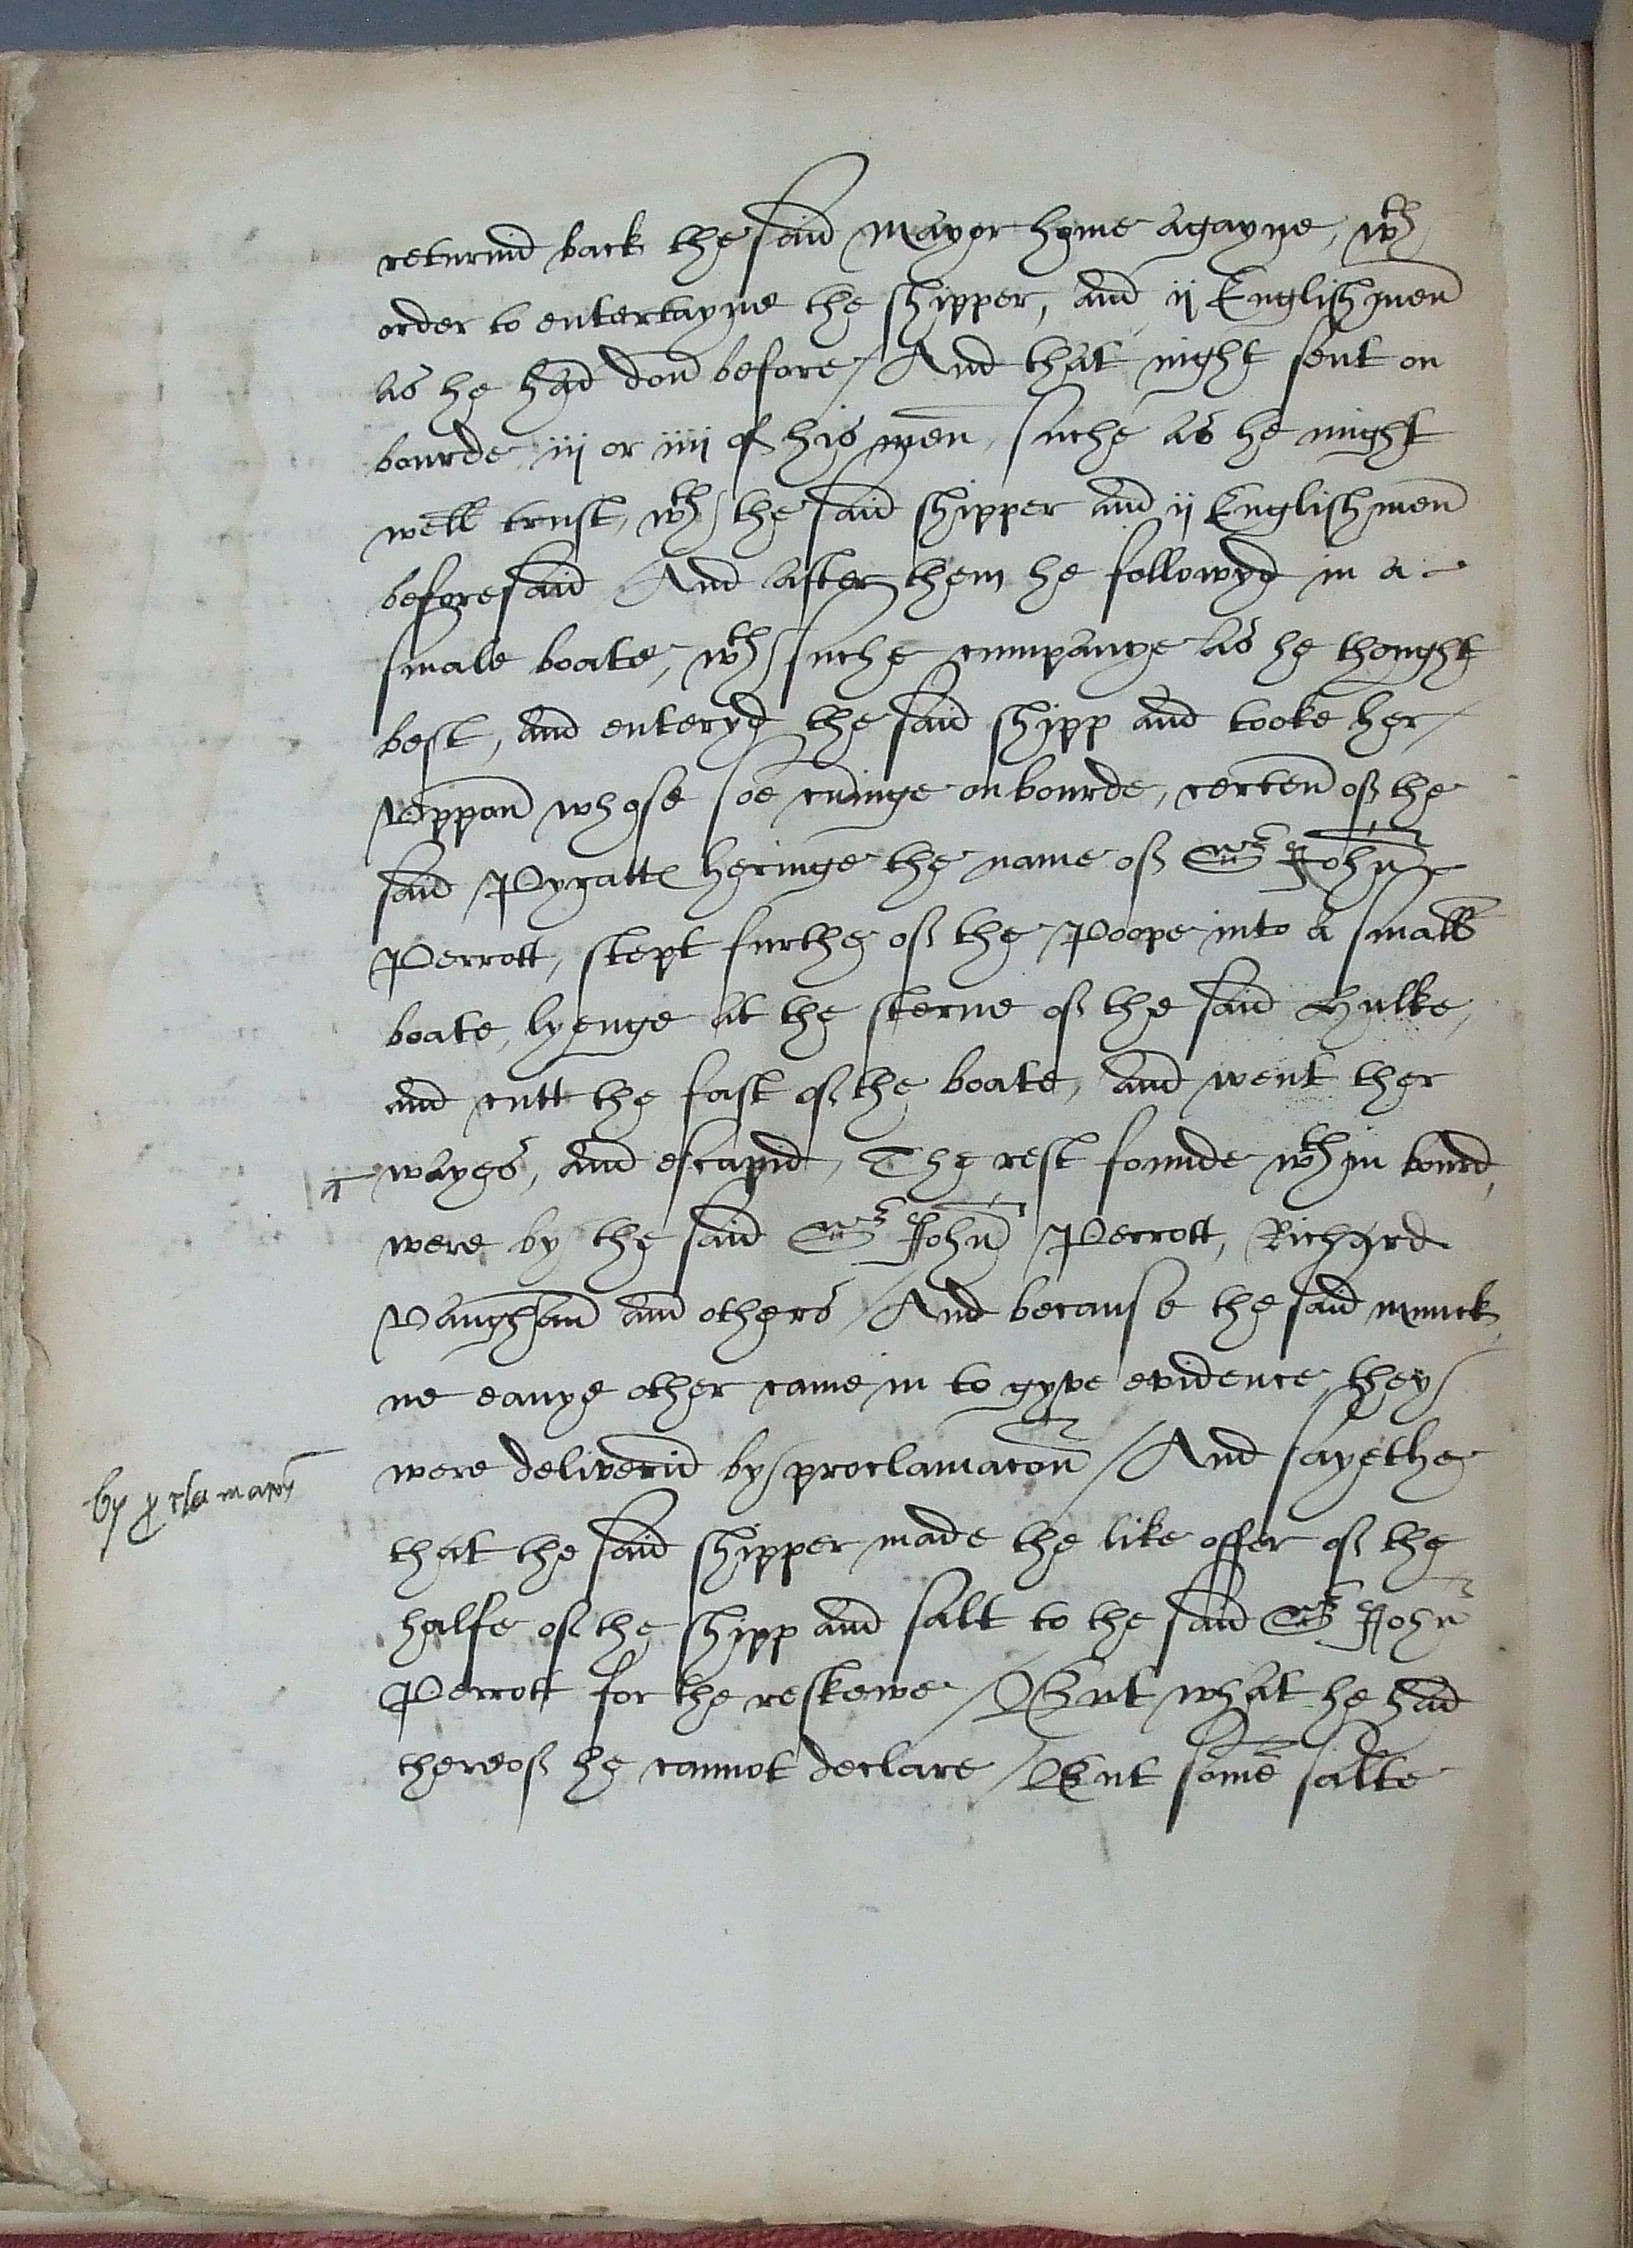 returnid back the said Mayor home agayne, wth
order to entertayne the shipper, and ij Englishmen
as he had don before / And that night sent on
bourde iij or iiij of his men, suche as he might
well trust, wth the said shipper and ij Englishmen
beforesaid And after them he followyd in a
smale boate, wth suche cumpanye as he thought
best, and enteryd the said shipp and tooke her /
Vppon whose soe cominge on bourde, certen of the
said Pyratts heringe the name of Sr John
Perrott, stept furthe of the Poope into a small
boate, lyenge at the sterne of the said Hulke,
and cutt the fast of the boate, and went ther
wayes, and escapid, The rest founde wthin bourd,
were by the said Sr John Perrott, Richard
Vaughan and others / And because the said
ne eanye other came in to gyve evidence, they
were deliverid by proclamacon / And sayethe
by proclamacon
that the said shipper made the like offer of the
halfe of the shipp and salt to the said Sr John
Perrott for the reskewe / But what he had
thereof he cannot declare / But some salte